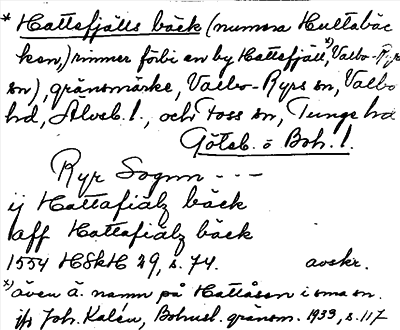 * Hattefjälls bäck (numera Hultabäc
ken,) rinner förbi en by Hattefjäll, x) Valbo-Ryr
sn), gränsmärke, Valbo-Ryrs sn, Valbo
hd, Älvsb. l., och Foss sn, Tunge hd
Göteb. o Boh. l.
Ryr Sognn - - -
ij Hattafiälz bäck
aff Hattafiälz bäck
1554 HSkH 29, s. 74. avskr.
x) även ä. namn på Hattåsen i sma sn.
jfr Joh. Kalén, Bohusl. gränsm. 1933, s. 117